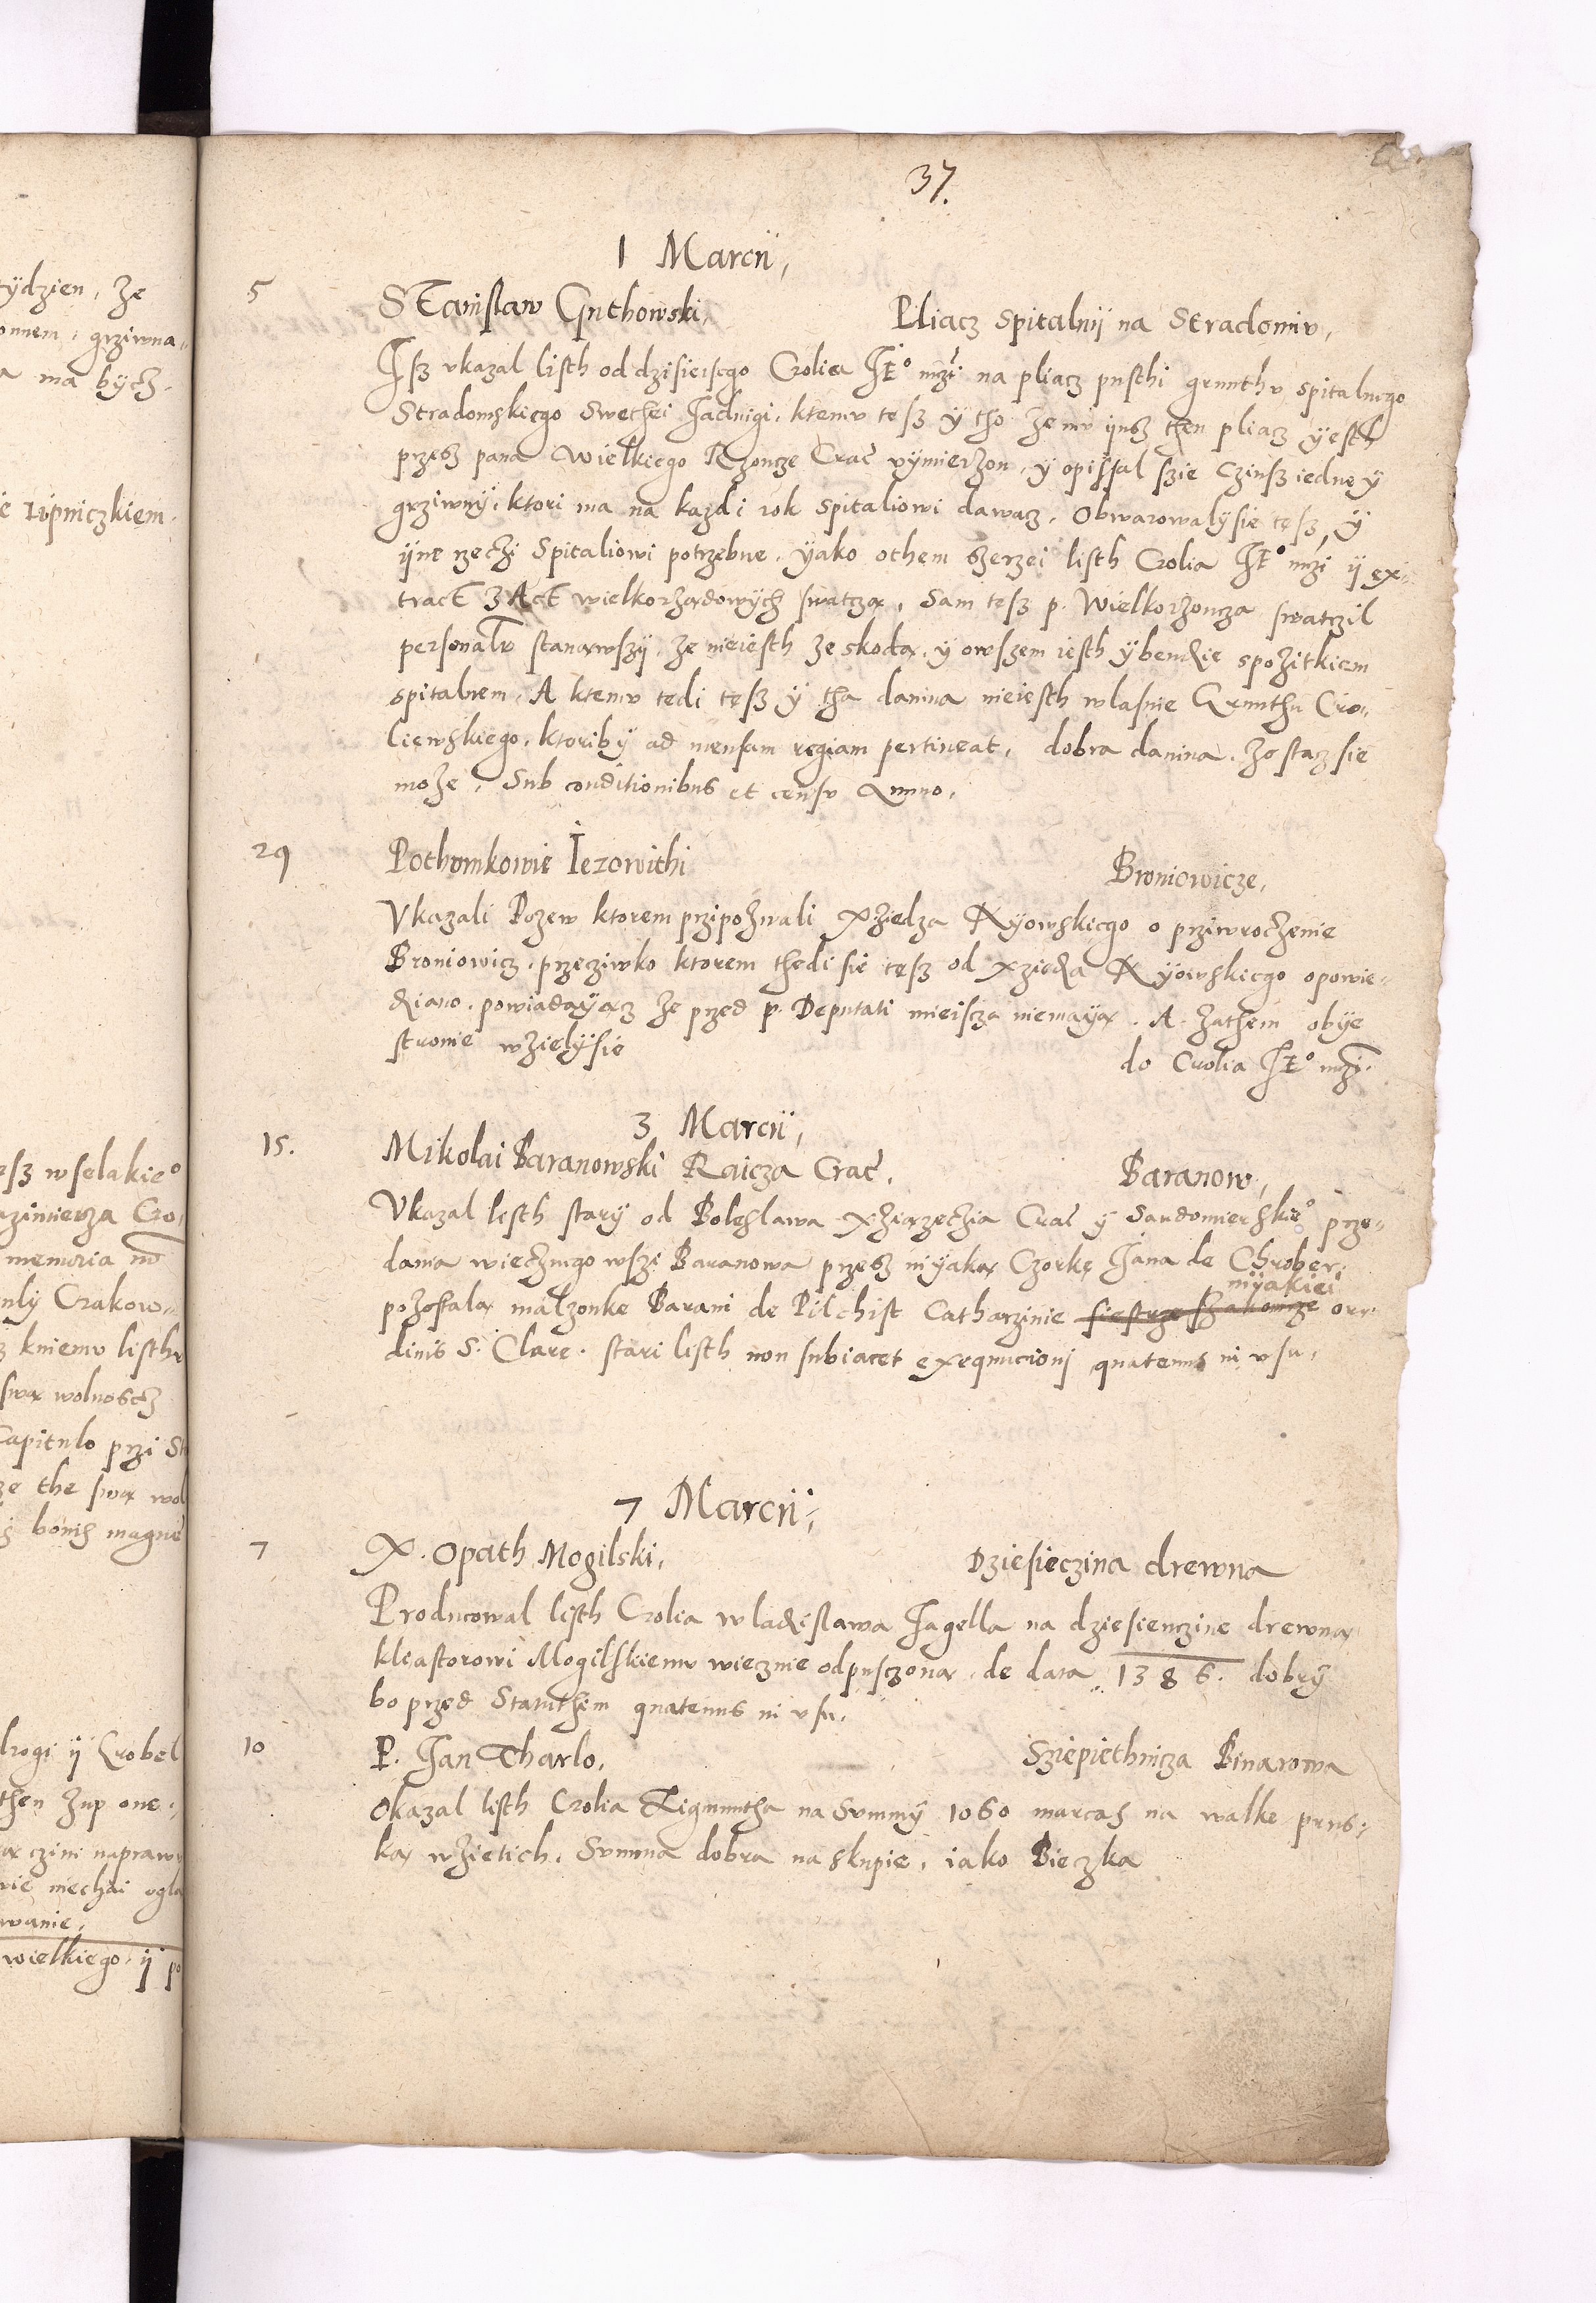 37.
1 Marcii,
5 Stanislaw Guthowski, Pliacz Spitalnij na Stradomiv,
Isz vkazal listh od dzisieisego Crolia JE° mczi na pliacz pusthi grunthv spitalnego
Stradomskiego Swethei Jadwigi, ktemv tesz ÿ tho Ze mv ijusz then pliacz ÿesth
przesz pana Wielkiego Rzoncze Crac vÿmierzon, ÿ opissal szie Czinsz iedneÿ
grziwnÿ, ktori ma na kazdi rok Spitaliowi dawacz, Obwarowalÿ sie tesz, ÿ
ijne rzeczi Spitaliowi potrzebne, ÿako othem szerzei listh Crolia JE° mczi ij ex-
tract z Act wielkorządowÿch swatczą, Sam tesz p. Wielkorzoncza swatczil
personalr stanąwszÿ, Ze nieiesth ze skodą, ÿ owszem iesth ÿ bendzie spozitkiem
spitalnem, A ktemv tedi tesz ÿ tha danina nieiesth wlasnie Grunthu Cro-
liewskiego, ktoribÿ ad mensam regiam pertineat, dobra danina, Zostacz sie
może, Sub conditionibus et censv Annuo,
29 Pothomkowie Jezowithi Broniowicze,
Vkazali Pozew ktorem przipozwali Xziedza Kÿowskiego o prziwroczenie
Broniowicz, przeziwko ktorem thedi sie tesz od Xziedza Kÿowskiego opowie-
dziano, powiadaÿącz Ze przed p. Deputati mieiscza niemaÿą. A Zathem obÿe
stronie wzielÿ sie do Crolia JE° mczi.
3 Marcii,
15. Mikolai Baranowski Raicza Crac, Baranow,
Vkazal listh starÿ od Boleslawa Xziązeczia Crac ÿ Sandomierskie° prze-
dania wiecznego wszi Baranowa przesz niÿaką Czorkę Jana de Chrober
pozostalą malzonke Barani de Pilchist Catharzinie siestrze szakonnze niÿakiei orr-
dinis S. Clare. stari listh non subiacet exequucionj quatenus in vsu,
7 Marcii,
7 X. Opath Mogilski, Dziesieczina drewna
Producowal listh Crolia Wladislawa Jagella na dziesienczine drewna
kliastorowi Mogilskiemv wiecznie odpusczoną, de data 1386. dobrÿ
bo przed Statuthem quatenus in vsu,
10 P. Jan Tharlo, Sziepiethnicza Binarowa
Okazal listh Crolia Zigmuntha na Summÿ 1060 marcas na walke prus-
ką wzietich, Summa dobra na skupie, iako Bieczka